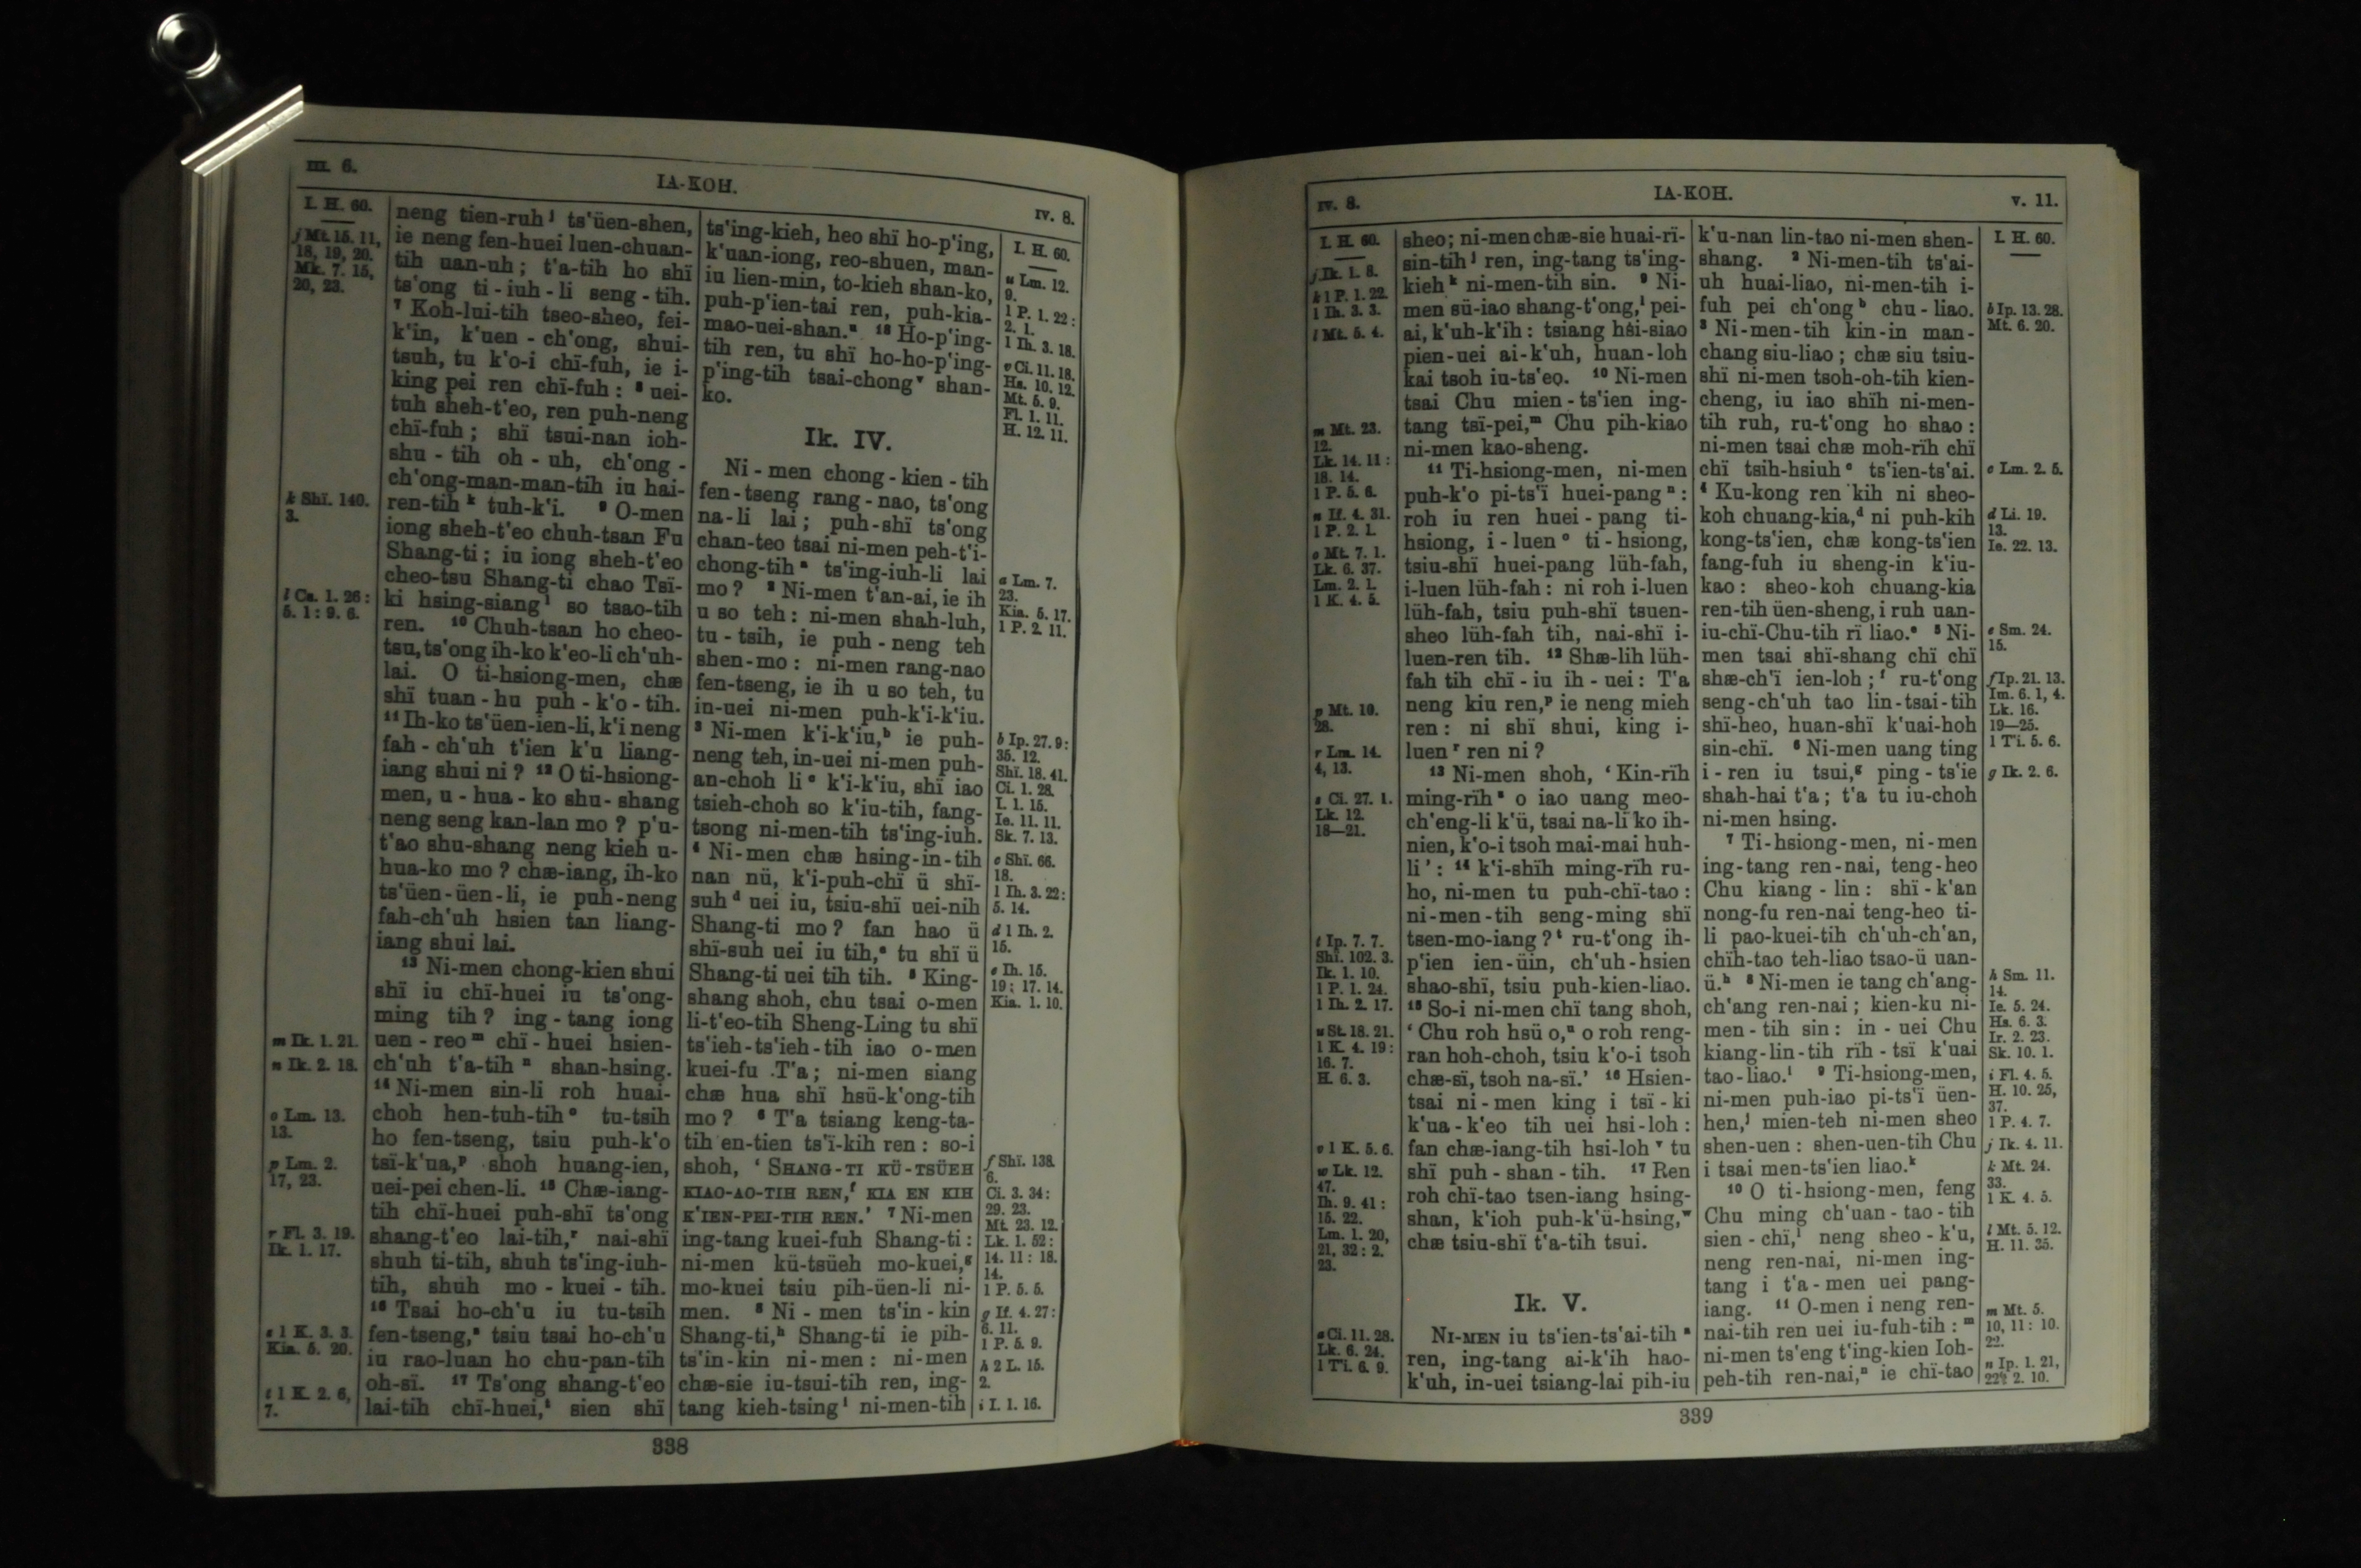 III. 6.
IA-KOH.
IV. 8.
I. H. 60.
j Mt. 15. 11,
18, 19, 20.
Mk. 7. 15,
20, 23.
k Shï. 140.
3.
l Cs. 1. 26 :
5. 1 : 9. 6.
m Ik. 1. 21.
n Ik. 2. 18.
o Lm. 13.
13.
p Lm. 2.
17, 23.
r Fl. 3. 19.
Ik. 1. 17.
s 1 K. 3. 3.
Kia. 5. 20.
t 1 K. 2. 6,
7.
neng tien-ruh j ts'üen-shen,
ie neng fen-huei luen-chuan-
tih uan-uh ; t'a-tih ho shï
ts'ong ti-iuh-li seng-tih.
7 Koh-lui-tih tseo-sheo, fei-
k'in, k'uen-ch'ong, shui-
tsuh, tu k'o-i chï-fuh, ie i-
king pei ren chï-fuh : 8 uei-
tuh sheh-t'eo, ren puh-neng
chï-fuh ; shï tsui-nan ioh-
shu-tih oh-uh, ch'ong-
ch'ong-man-man-tih iu hai-
ren-tih k tuh-k'i. 9 O-men
iong sheh-t'eo chuh-tsan Fu
Shang-ti ; iu iong sheh-t'eo
cheo-tsu Shang-ti chao Tsï-
ki hsing-siang l so tsao-tih
ren. 10 Chuh-tsan ho cheo-
tsu, ts'ong ih-ko k'eo-li ch'uh-
lai. O ti-hsiong-men, chæ
shï tuan-hu puh-k'o-tih.
11 Ih-ko ts'üen-ien-li, k'i neng
fah-ch'uh t'ien k'u liang-
iang shui ni ? 12 O ti-hsiong-
men, u-hua-ko shu-shang
neng seng kan-lan mo ? p'u-
t'ao shu-shang neng kieh u-
hua-ko mo ? chæ-iang, ih-ko
ts'üen-üen-li, ie puh-neng
fah-ch'uh hsien tan liang-
iang shui lai.
13 Ni-men chong-kien shui
shï iu chï-huei iu ts'ong-
ming tih ? ing-tang iong
uen-reo m chï-huei hsien-
ch'uh t'a-tih n shan-hsing.
14 Ni-men sin-li roh huai-
choh hen-tuh-tih o tu-tsih
ho fen-tseng, tsiu puh-k'o
tsï-k'ua, p shoh huang-ien,
uei-pei chen-li. 15 Chæ-iang-
tih chï-huei puh-shï ts'ong
shang-t'eo lai-tih, r nai-shï
shuh ti-tih, shuh ts'ing-iuh-
tih, shuh mo-kuei-tih.
16 Tsai ho-ch'u iu tu-tsih
fen-tseng, s tsiu tsai ho-ch'u
iu rao-luan ho chu-pan-tih
oh-sï. 17 Ts'ong shang-t'eo
lai-tih chï-huei, t sien shï
ts'ing-kieh, heo shï ho-p'ing,
k'uan-iong, reo-shuen, man-
iu lien-min, to-kieh shan-ko,
puh-p'ien-tai ren, puh-kia-
mao-uei-shan. u 18 Ho-p'ing-
tih ren, tu shï ho-ho-p'ing-
p'ing-tih tsai-chong v shan-
ko.
Ik. IV.
Ni-men chong-kien-tih
fen-tseng rang-nao, ts'ong
na-li lai ; puh-shï ts'ong
chan-teo tsai ni-men peh-t'i-
chong-tih a ts'ing-iuh-li lai
mo ? 2 Ni-men t'an-ai, ie ih
u so teh : ni-men shah-luh,
tu-tsih, ie puh-neng teh
shen-mo : ni-men rang-nao
fen-tseng, ie ih u so teh, tu
in-uei ni-men puh-k'i-k'iu.
3 Ni-men k'i-k'iu, b ie puh-
neng teh, in-uei ni-men puh-
an-choh li c k'i-k'iu, shï iao
tsieh-choh so k'iu-tih, fang-
tsong ni-men-tih ts'ing-iuh.
4 Ni-men chæ hsing-in-tih
nan nü, k'i-puh-chï ü shï-
suh d uei iu, tsiu-shï uei-nih
Shang-ti mo ? fan hao ü
shï-suh uei iu tih, e tu shï ü
Shang-ti uei tih tih. 5 King-
shang shoh, chu tsai o-men
li-t'eo-tih Sheng-Ling tu shï
ts'ieh-ts'ieh-tih iao o-men
kuei-fu T'a ; ni-men siang
chæ hua shï hsü-k'ong-tih
mo ? 6 T'a tsiang keng-ta-
tih en-tien ts'ï-kih ren : so-i
shoh, ' SHANG-TI KÜ-TSÜEH
KIAO-AO-TIH REN, f KIA EN KIH
K'IEN-PEI-TIH REN.' 7 Ni-men
ing-tang kuei-fuh Shang-ti :
ni-men kü-tsüeh mo-kuei, g
mo-kuei tsiu pih-üen-li ni-
men. 8 Ni-men ts'in-kin
Shang-ti, h Shang-ti ie pih-
ts'in-kin ni-men : ni-men
chæ-sie iu-tsui-tih ren, ing-
tang kieh-tsing i ni-men-tih
I. H. 60.
u Lm. 12.
9.
1 P. 1. 22 :
2. 1.
1 Ih. 3. 18.
v Ci. 11. 18.
Hs. 10. 12.
Mt. 5. 9.
Fl. 1. 11.
H. 12. 11.
a Lm. 7.
23.
Kia. 5. 17.
1 P. 2. 11.
b Ip. 27. 9 :
35. 12.
Shï. 18. 41.
Ci. 1. 28.
I. 1. 15.
Ie. 11. 11.
Sk. 7. 13.
c Shï. 66.
18.
1 Ih. 3. 22 :
5. 14.
d 1 Ih. 2.
15.
e Ih. 15.
19 ; 17. 14.
Kia. 1. 10.
f Shï. 138.
6.
Ci. 3. 34 :
29. 23.
Mt. 23. 12.
Lk. 1. 52 :
14. 11 : 18.
14.
1 P. 5. 5.
g If. 4. 27 :
6. 11.
1 P. 5. 9.
h 2 L. 15.
2.
i I. 1. 16.
338
IV. 8.
IA-KOH.
V. 11.
I. H. 60.
j Ik. 1. 8.
k 1 P. 1. 22.
1 Ih. 3. 3.
l Mt. 5. 4.
m Mt. 23.
12.
Lk. 14. 11 :
18. 14.
1 P. 5. 6.
n If. 4. 31.
1 P. 2. 1.
o Mt. 7. 1.
Lk. 6. 37.
Lm. 2. 1.
1 K. 4. 5.
p Mt. 10.
28.
r Lm. 14.
4, 13.
s Ci. 27. 1.
Lk. 12.
18—21.
t Ip. 7. 7.
Shï. 102. 3.
Ik. 1. 10.
1 P. 1. 24.
1 Ih. 2. 17.
u St. 18. 21.
1 K. 4. 19 :
16. 7.
H. 6. 3.
v 1 K. 5. 6.
w Lk. 12.
47.
Ih. 9. 41 :
15. 22.
Lm. 1. 20,
21, 32 : 2.
23.
a Ci. 11. 28.
Lk. 6. 24.
1 Ti. 6. 9.
sheo ; ni-men chæ-sie huai-rï-
sin-tih j ren, ing-tang ts'ing-
kieh k ni-men-tih sin. 9 Ni-
men sü-iao shang-t'ong, l pei-
ai, k'uh-k'ih : tsiang hsi-siao
pien-uei ai-k'uh, huan-loh
kai tsoh iu-ts'eo. 10 Ni-men
tsai Chu mien-ts'ien ing-
tang tsï-pei, m Chu pih-kiao
ni-men kao-sheng.
11 Ti-hsiong-men, ni-men
puh-k'o pi-ts'ï huei-pang n :
roh iu ren huei-pang ti-
hsiong, i-luen o ti-hsiong,
tsiu-shï huei-pang lüh-fah,
i-luen lüh-fah : ni roh i-luen
lüh-fah, tsiu puh-shï tsuen-
sheo lüh-fah tih, nai-shï i-
luen-ren tih. 12 Shæ-lih lüh-
fah tih chï-iu ih-uei : T'a
neng kiu ren, p ie neng mieh
ren : ni shï shui, king i-
luen r ren ni ?
13 Ni-men shoh, ' Kin-rïh
ming-rïh s o iao uang meo-
ch'eng-li k'ü, tsai na-li ko ih-
nien, k'o-i tsoh mai-mai huh-
li ' : 14 k'i-shïh ming-rïh ru-
ho, ni-men tu puh-chï-tao :
ni-men-tih seng-ming shï
tsen-mo-iang ? t ru-t'ong ih-
p'ien ien-üin, ch'uh-hsien
shao-shï, tsiu puh-kien-liao.
15 So-i ni-men chï tang shoh,
' Chu roh hsü o, u o roh reng-
ran hoh-choh, tsiu k'o-i tsoh
chæ-sï, tsoh na-sï.' 16 Hsien-
tsai ni-men king i tsï-ki
k'ua-k'eo tih uei hsi-loh :
fan chæ-iang-tih hsi-loh v tu
shï puh-shan-tih. 17 Ren
roh chï-tao tsen-iang hsing-
shan, k'ioh puh-k'ü-hsing, w
chæ tsiu-shï t'a-tih tsui.
Ik. V.
NI-MEN iu ts'ien-ts'ai-tih a
ren, ing-tang ai-k'ih hao-
k'uh, in-uei tsiang-lai pih-iu
k'u-nan lin-tao ni-men shen-
shang. 2 Ni-men-tih ts'ai-
uh huai-liao, ni-men-tih i-
fuh pei ch'ong b chu-liao.
3 Ni-men-tih kin-in man-
chang siu-liao ; chæ siu tsiu-
shï ni-men tsoh-oh-tih kien-
cheng, iu iao shïh ni-men-
tih ruh, ru-t'ong ho shao :
ni-men tsai chæ moh-rïh chï
chï tsih-hsiuh c ts'ien-ts'ai.
4 Ku-kong ren kih ni sheo-
koh chuang-kia, d ni puh-kih
kong-ts'ien, chæ kong-ts'ien
fang-fuh iu sheng-in k'iu-
kao : sheo-koh chuang-kia
ren-tih üen-sheng, i ruh uan-
iu-chï-Chu-tih rï liao. e 5 Ni-
men tsai shï-shang chï chï
shæ-ch'ï ien-loh ; f ru-t'ong
seng-ch'uh tao lin-tsai-tih
shï-heo, huan-shï k'uai-hoh
sin-chï. 6 Ni-men uang ting
i-ren iu tsui, g ping-ts'ie
shah-hai t'a ; t'a tu iu-choh
ni-men hsing.
7 Ti-hsiong-men, ni-men
ing-tang ren-nai, teng-heo
Chu kiang-lin : shï-k'an
nong-fu ren-nai teng-heo ti-
li pao-kuei-tih ch'uh-ch'an,
chïh-tao teh-liao tsao-ü uan-
ü. h 8 Ni-men ie tang ch'ang-
ch'ang ren-nai ; kien-ku ni-
men-tih sin : in-uei Chu
kiang-lin-tih rïh-tsï k'uai
tao-liao. i 9 Ti-hsiong-men,
ni-men puh-iao pi-ts'ï üen-
hen, j mien-teh ni-men sheo
shen-uen : shen-uen-tih Chu
i tsai men-ts'ien liao. k
10 O ti-hsiong-men, feng
Chu ming ch'uan-tao-tih
sien-chï, l neng sheo-k'u,
neng ren-nai, ni-men ing-
tang i t'a-men uei pang-
iang. 11 O-men i neng ren-
nai-tih ren uei iu-fuh-tih : m
ni-men ts'eng t'ing-kien Ioh-
peh-tih ren-nai, n ie chï-tao
I. H. 60.
b Ip. 13. 28.
Mt. 6. 20.
c Lm. 2. 5.
d Li. 19.
13.
Ie. 22. 13.
e Sm. 24.
15.
f Ip. 21. 13.
Im. 6. 1, 4.
Lk. 16.
19—25.
1 Ti. 5. 6.
g Ik. 2. 6.
h Sm. 11.
14.
Ie. 5. 24.
Hs. 6. 3.
Ir. 2. 23.
Sk. 10. 1.
i Fl. 4. 5.
H. 10. 25,
37.
1 P. 4. 7.
j Ik. 4. 11.
k Mt. 24.
33.
1 K. 4. 5.
l Mt. 5. 12.
H. 11. 35.
m Mt. 5.
10, 11 : 10.
22.
n Ip. 1. 21,
22 : 2. 10.
339